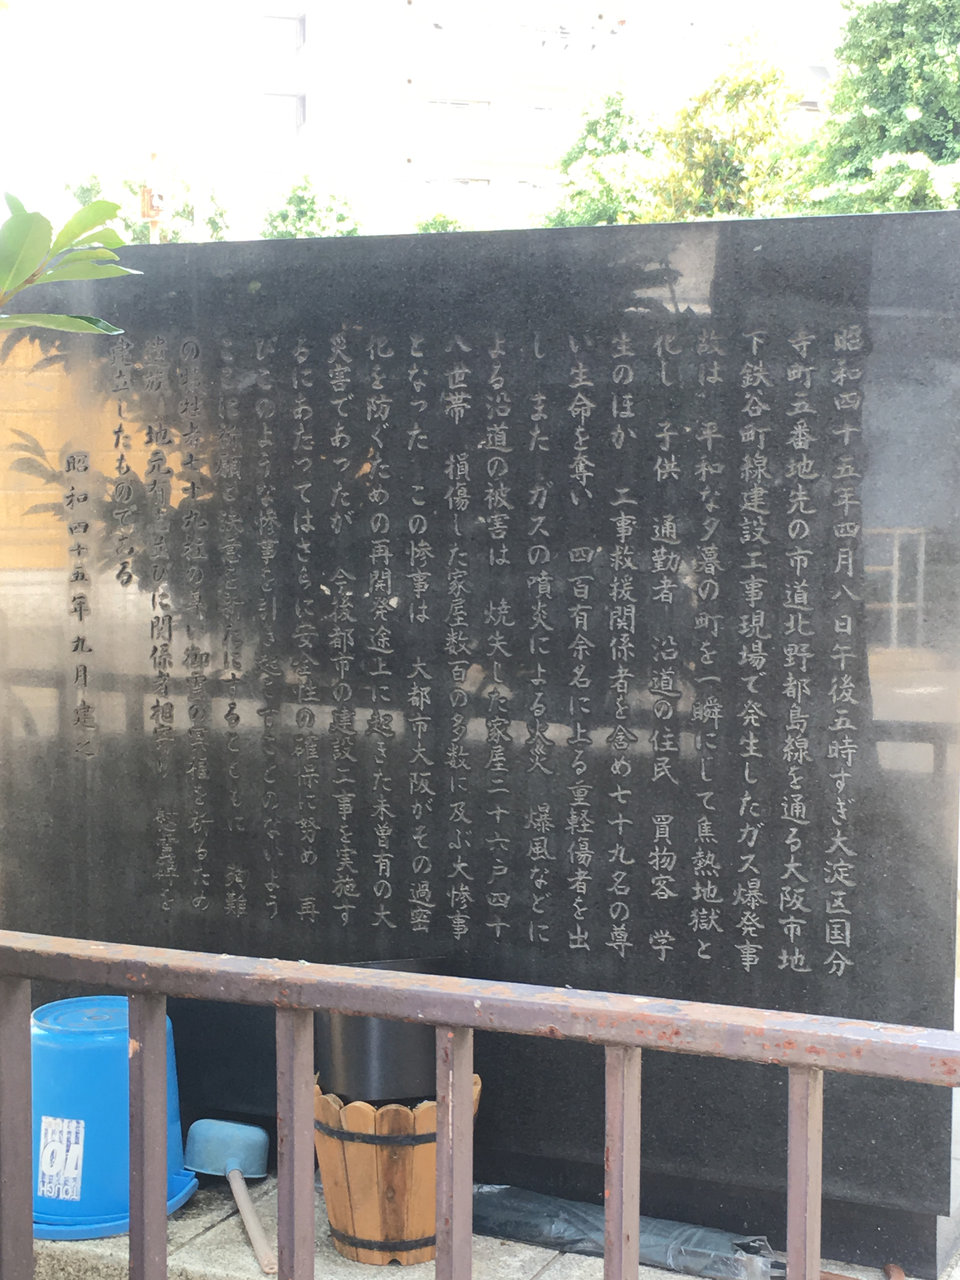 昭和四十五年四月八日午後五時すぎ大淀区国分
寺町五番地先の市道北野都島線を通る大阪市地
下鉄谷町線建設工事現場で発生したガス爆発事
故は 平和な夕暮の町を一瞬にして焦熱地獄と
化し 子供 通勤者 沿道の住民 買物客 学
生のほか 工事救援関係者を含め七十九名の尊
い生命を奪い 四百有余名に上る重軽傷者を出
し また ガスの噴炎による火災 爆風などに
よる沿道の被害は 焼失した家屋三十六戸四十
八世帯 損傷した家屋数百の多数に及ぶ大惨事
となった この惨事は 大都市大阪がその過密
化を防ぐための再開発途上に起きた未曽有の大
災害であったが 今後都市の建設工事を実施す
るにあたってはさらに安全性の確保に努め 再
びこのような惨事を引き起すことのないよう
ここに祈願と決意を新たにするとともに 殉難
の犠牲者七十九柱の尊い御霊の冥福を祈るため
遺族 地元有志並びに関係者相寄り 慰霊碑を
建立したものである
昭和四十五年九月建之